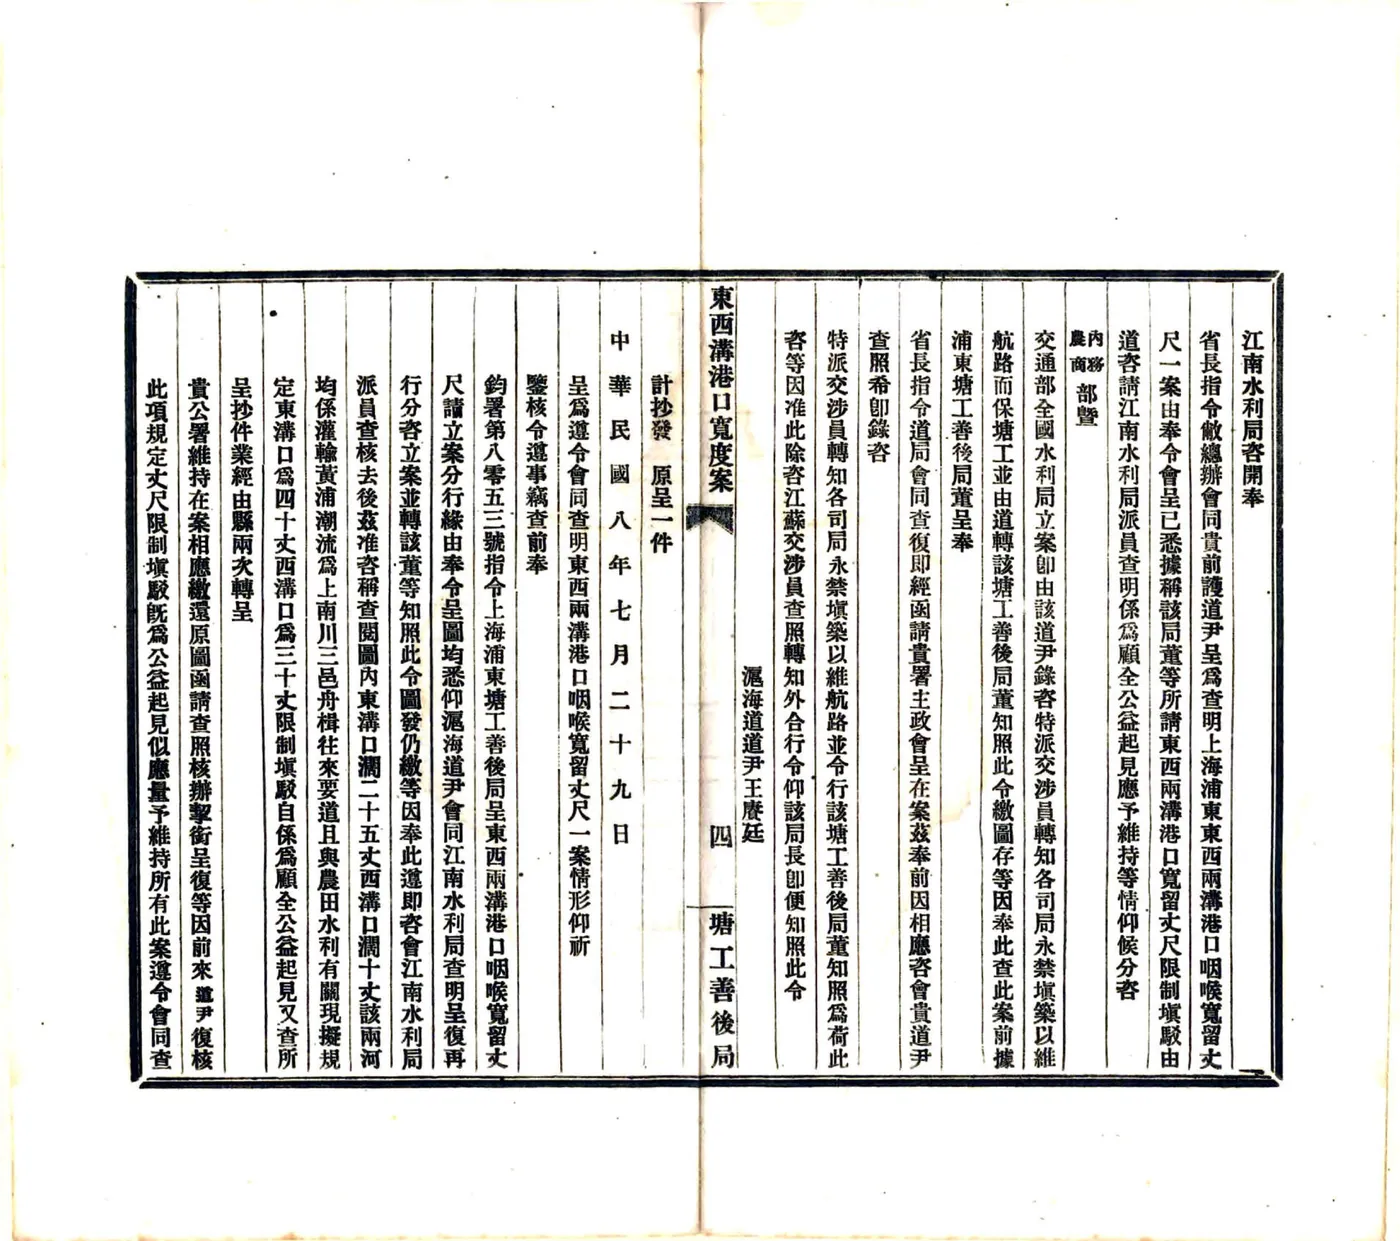 江南水利局咨開奉
省長指令敝總辦會同貴前護道尹呈爲查明上海浦東東西兩溝港口咽喉寬留丈
尺一案由奉令會呈已悉據稱該局董等所請東西兩溝港口寬留丈尺限制塡駁由
道咨請江南水利局派員查明係爲顧全公益起見應予維持等情仰候分咨
內務農商部暨
交通部全國水利局立案卽由該道尹錄咨特派交涉員轉知各司局永禁塡築以維
航路而保塘工並由道轉該塘工善後局董知照此令繳圖存等因奉此查此案前據
浦東塘工善後局董呈奉
省長指令道局會同查復即經函請貴署主政會呈在案茲奉前因相應咨會貴道尹
查照希卽錄咨
特派交涉員轉知各司局永禁塡築以維航路並令行該塘工善後局董知照爲荷此
咨等因准此除咨江蘇交涉員查照轉知外合行令仰該局長卽便知照此令
滬海道道尹王賡廷
東西溝港口寬度案
四
塘工善後局
計抄發　原呈一件
中華民國八年七月二十九日
呈爲遵令會同查明東西兩溝港口咽喉寬留丈尺一案情形仰祈
鑒核令遵事竊查前奉
鈞署第八零五三號指令上海浦東塘工善後局呈東西兩溝港口咽喉寬留丈
尺請立案分行緣由奉令呈圖均悉仰滬海道尹會同江南水利局查明呈復再
行分咨立案並轉該董等知照此令圖發仍繳等因奉此遵即咨會江南水利局
派員查核去後茲准咨稱查閱圖內東溝口濶二十五丈西溝口濶十丈該兩河
均係灌輸黃浦潮流爲上南川三邑舟楫往來要道且與農田水利有關現擬規
定東溝口爲四十丈西溝口爲三十丈限制塡駁自係爲顧全公益起見又查所
呈抄件業經由縣兩次轉呈
貴公署維持在案相應繳還原圖函請查照核辦挈銜呈復等因前來道尹復核
此項規定丈尺限制塡駁旣爲公益起見似應量予維持所有此案遵令會同查